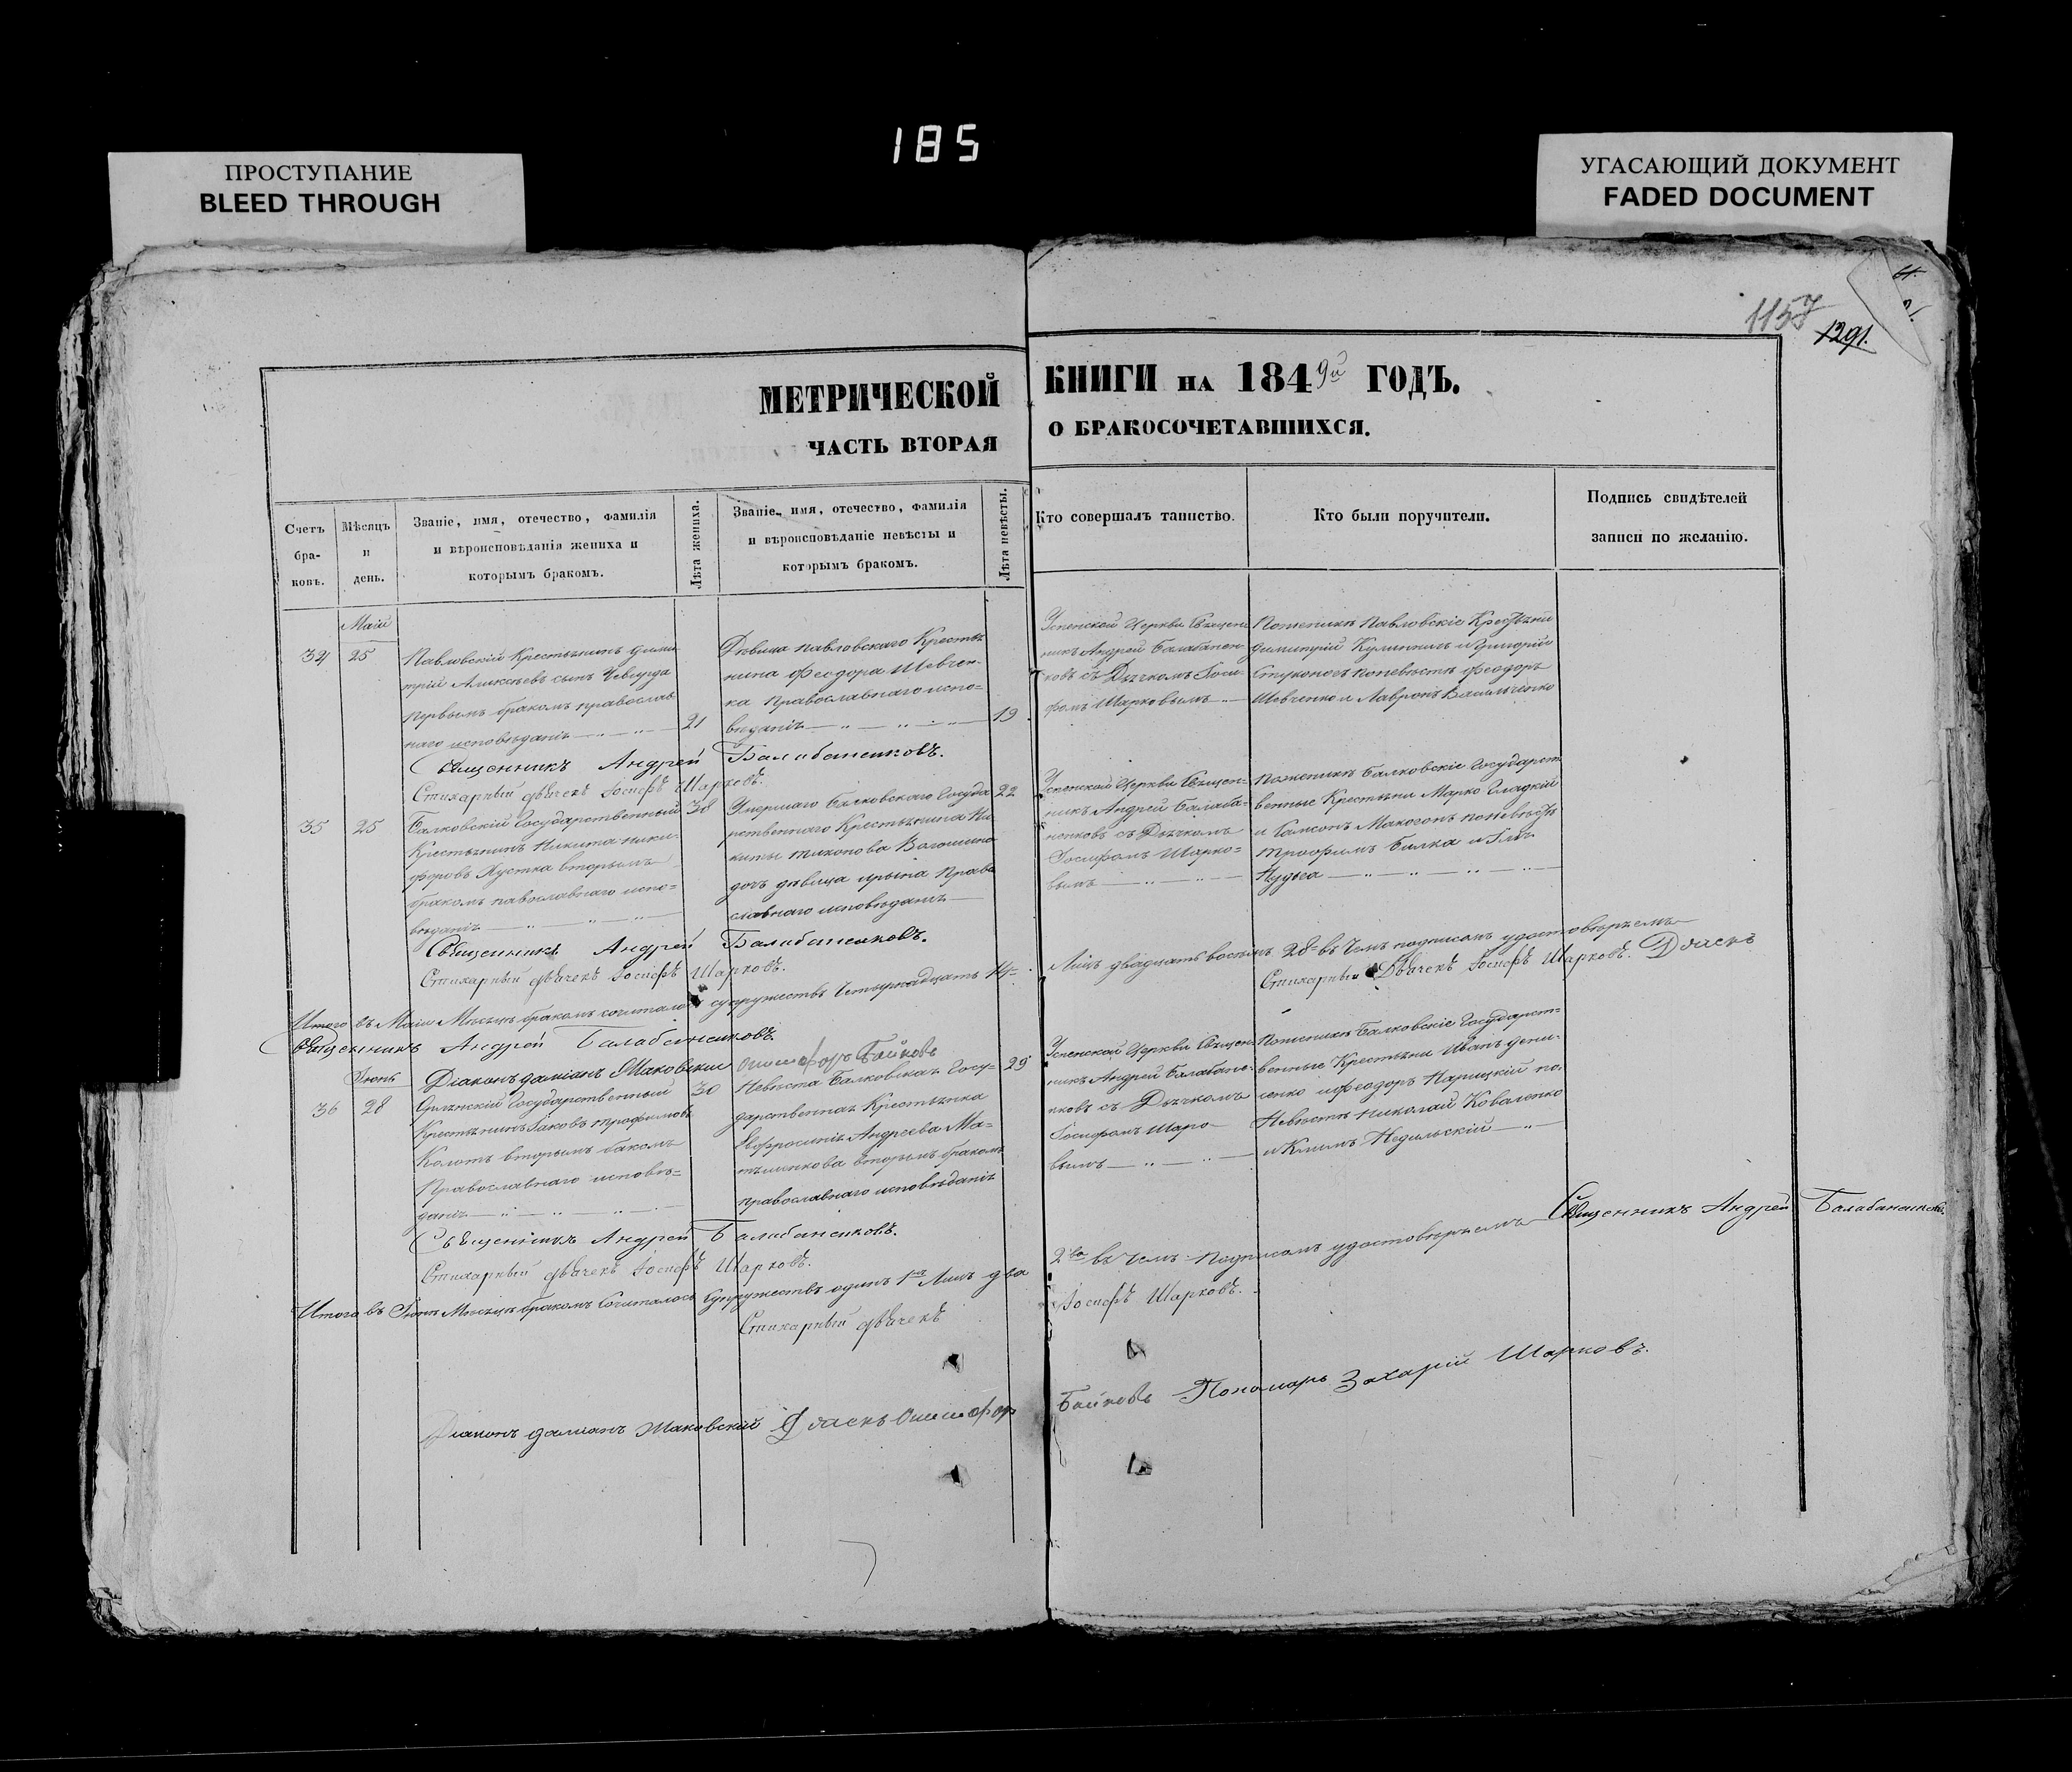 185
ПРОСТУПАНИЕ
BLEED THROUGH
УГАСАЮЩИЙ ДОКУМЕНТ
FADED DOCUMENT
1157
1291.
МЕТРИЧЕСКОЙ КНИГИ НА 1849й ГОДЪ.
ЧАСТЬ ВТОРАЯ О БРАКОСОЧЕТАВШИХСЯ.
Счетъ бра-ковъ.
Мѣсяцъ и день.
Званіе, имя, отечество, фамилія
и вѣроисповѣданія жениха и
которымъ бракомъ.
Лѣта жениха.
Званіе, имя, отечество, фамилія
и вѣроисповѣданіе невѣсты и
которымъ бракомъ.
Лѣта невѣсты.
Кто совершалъ таинство.
Кто были поручители.
Подпись свидѣтелей
записи по желанію.
Маія
34 25
Павловскій Крестьянинъ Дими-
трій Алексѣевъ сынъ
первымъ бракомъ православ
наго исповѣданія
21
Дѣвица павловскаго Крестья
нина Феодора Шевчен-
ка православнаго испо-
вѣданія
19
Успенской Церкви Священ
никъ Андрей Балабанен-
ковъ съ Дьячкомъ Іоси-
фомъ Шарковымъ
Поженихѣ Павловскіе Крестьяни
Димитрій и Григорій
поневѣстѣ Феодоръ
Шевченко и Лавронъ Васильченко
Священникъ Андрей Балабаненковъ.
Стихарный дьячекъ Іосифъ Шарковъ.
35 25
Балковскій Государственный
Крестьянинъ Никита Ники-
форовъ Пустка вторымъ
бракомъ павославнаго испо-
вѣданія
38
Умершаго Балковскаго Госуда
рственнаго Крестьянина Ни
киты Тихонова Волошина
дочь дѣвица Ирина Право
славнаго исповѣданія
22
Успенской Церкви Священ-
никъ Андрей Балаба-
ненковъ съ Дьячкомъ
Іосифомъ Шарко-
вымъ
Поженихѣ Балковскіе Государст
венные Крестьяни Марко Гладкій
и Самсонъ Макогонъ поневѣстѣ
Трофимъ Билка и
Нудьга
Священникъ Андрей Балабаненковъ.
Стихарный дьячекъ Іосифъ Шарковъ.
Итого въ Маіи Мѣсяцѣ бракомъ сочиталось супружествъ Четырнадцать 14 Лицъ двадцать восемь 28 въ чемъ подписомъ удостовѣряемъ
Священникъ Андрей Балабаненковъ. Стихарный Дьячекъ Іосифъ Шарковъ. Дьячекъ
Діаконъ Даміанъ Маковскій Онисифоръ Байковъ
Іюнь
36 28
Государственный
Крестьянинъ Іаковъ Трофимовъ
вторымъ бакомъ
Православнаго исповѣ-
данія
30
Невѣста Балковская Госу-
дарственная Крестьянка
Евфросинія Андреева Ма-
вторымъ бракомъ
православнаго исповѣданія
29
Успенской Церкви Священ
никъ Андрей Балабане-
нковъ съ Дьячкомъ
Іосифомъ Шаро-
вымъ
Поженихѣ Балковскіе Государст-
венные Крестьяни Иванъ Дени-
сенко и Феодоръ Нарицкій по
Невѣстѣ Николай Коваленко
и Климъ Недильскій
Священникъ Андрей Балабаненковъ.
Стихарный дьячекъ Іосифъ Шарковъ.
Итого въ Іюнѣ Мѣсяцѣ бракомъ Сочиталось Супружествъ одинъ Лицъ два 2ва въ чемъ подписомъ удостовѣряемъ Священникъ Андрей Балабаненковъ.
Стихарный дьячекъ Іосифъ Шарковъ.
Діаконъ Даміанъ Маковскій Дьячекъ Онисифоръ Байковъ Пономарь Захарій Шарковъ.